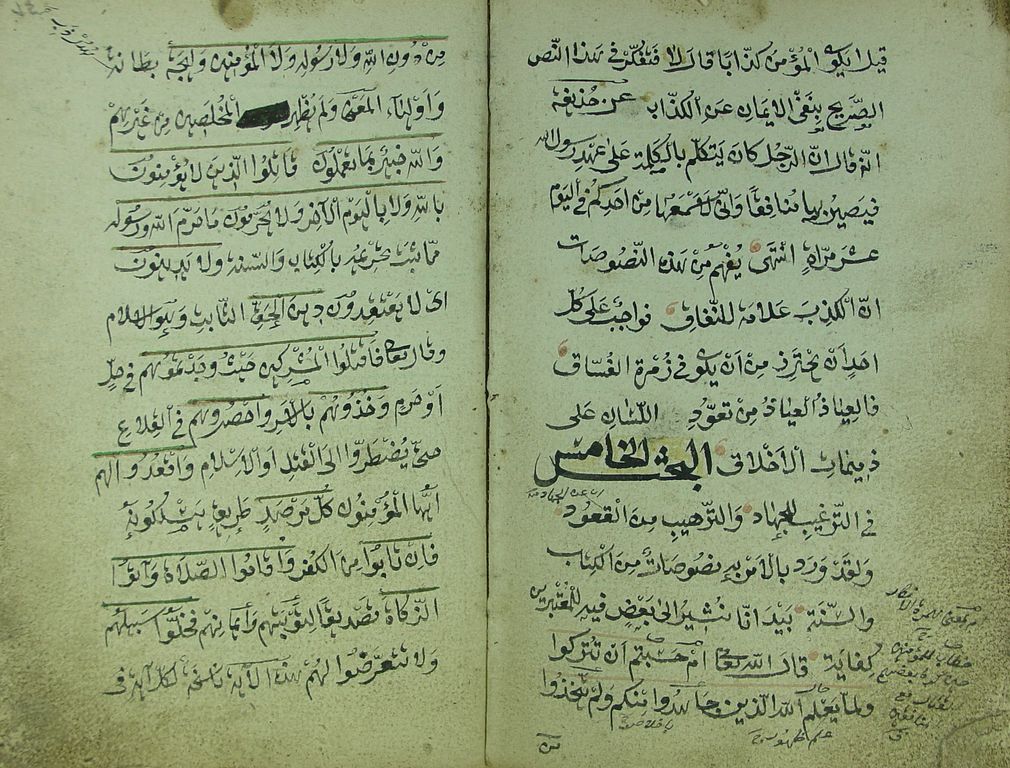 قيل ايكون المؤمن كذابا قال لا فتفكر في هذا النص
الصريح بنفي الايمان عن الكذاب عن حذيفة
انه قال ان الرجل كان يتكلم بالكلمة على عهد رسول الله
فيصير بها منافقا واني لاسمعها من احدكم في اليوم
عشر مرات انتهى يفهم من هذه النصوصات
ان الكذب علامة للنفاق فواجب على كل
احد ان يحترز من ان يكون في زمرة الفساق
فالعياذ العياذ من تعود اللسان على
ذميمات الاخلاق البحث الخامس
في الترغيب للجهاد والترهيب من القعود
ولقد ورد بالامر به نصوصات من الكتاب
والسنة بيد انا نشير الى بعض فيه للمعتبرين
كفاية قال الله تعالى ام حسبتم ان تتركوا
ولما يعلم الله الذين جاهدوا منكم ولم يتخذوا
من
من دون الله ولا رسوله ولا المؤمنين وليجة بطانة
واولياء المعنى ولم يظهر المخلصين من غيرهم
والله خبير بما تعملون قاتلوا الذين لا يؤمنون
بالله ولا باليوم الآخر ولا يحرمون ما حرم الله ورسوله
مما ثبت تحريمه بالكتاب والسنة ولا يدينون
اى لا يعتقدون دين الحق الثابت وهو الاسلام
وقال تعالى فاقتلوا المشركين حيث وجدتموهم في حل
او حرم وخذوهم بالاسر واحصروهم في القلاع
حتى يضطروا الى القتل او الاسلام واقعدوا لهم
ايها المؤمنون كل مرصد طريق يسلكونه
فان تابوا من الكفر واقاموا الصلاة وآتوا
الزكاة تصديقا لتوبتهم وايمانهم فخلوا سبيلهم
ولا تتعرضوا لهم هذه الآية ناسخة لكل آية في